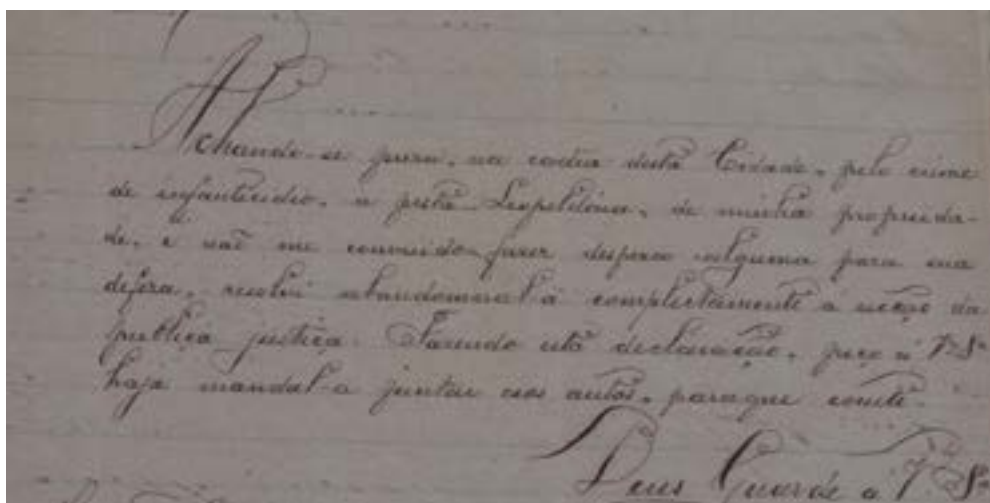 Achando-se preza, na cadêa desta Cidade, pelo crime
de infanticidio, a preta Leopoldina, de minha proprieda-
de, e não me convindo fazer despeza alguma para sua
defeza, resolvi abandonnal-a completamente a acção da
publica justiça. Fazendo esta declaração, peço a V.ª S.ª
haja mandal-a juntar aos autos, para que conste.
Deus Guarde a V.ª S.ª